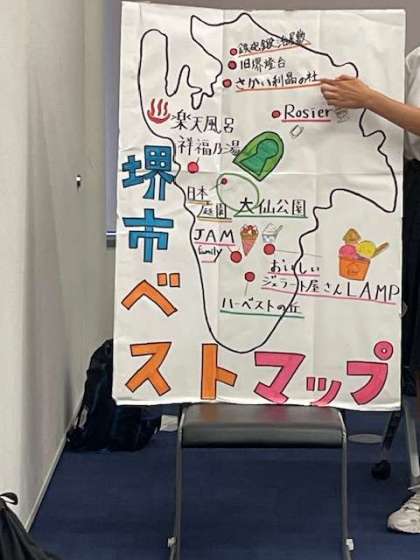 鉄砲鍛冶屋敷
旧堺燈台
さかい利晶の杜
Rosier
楽天風呂
祥福乃湯
日本
庭園
大仙公園
JAM
family
おいしい
ジェラート屋さんLAMP
ハーベストの丘
堺市ベ
ストマップ